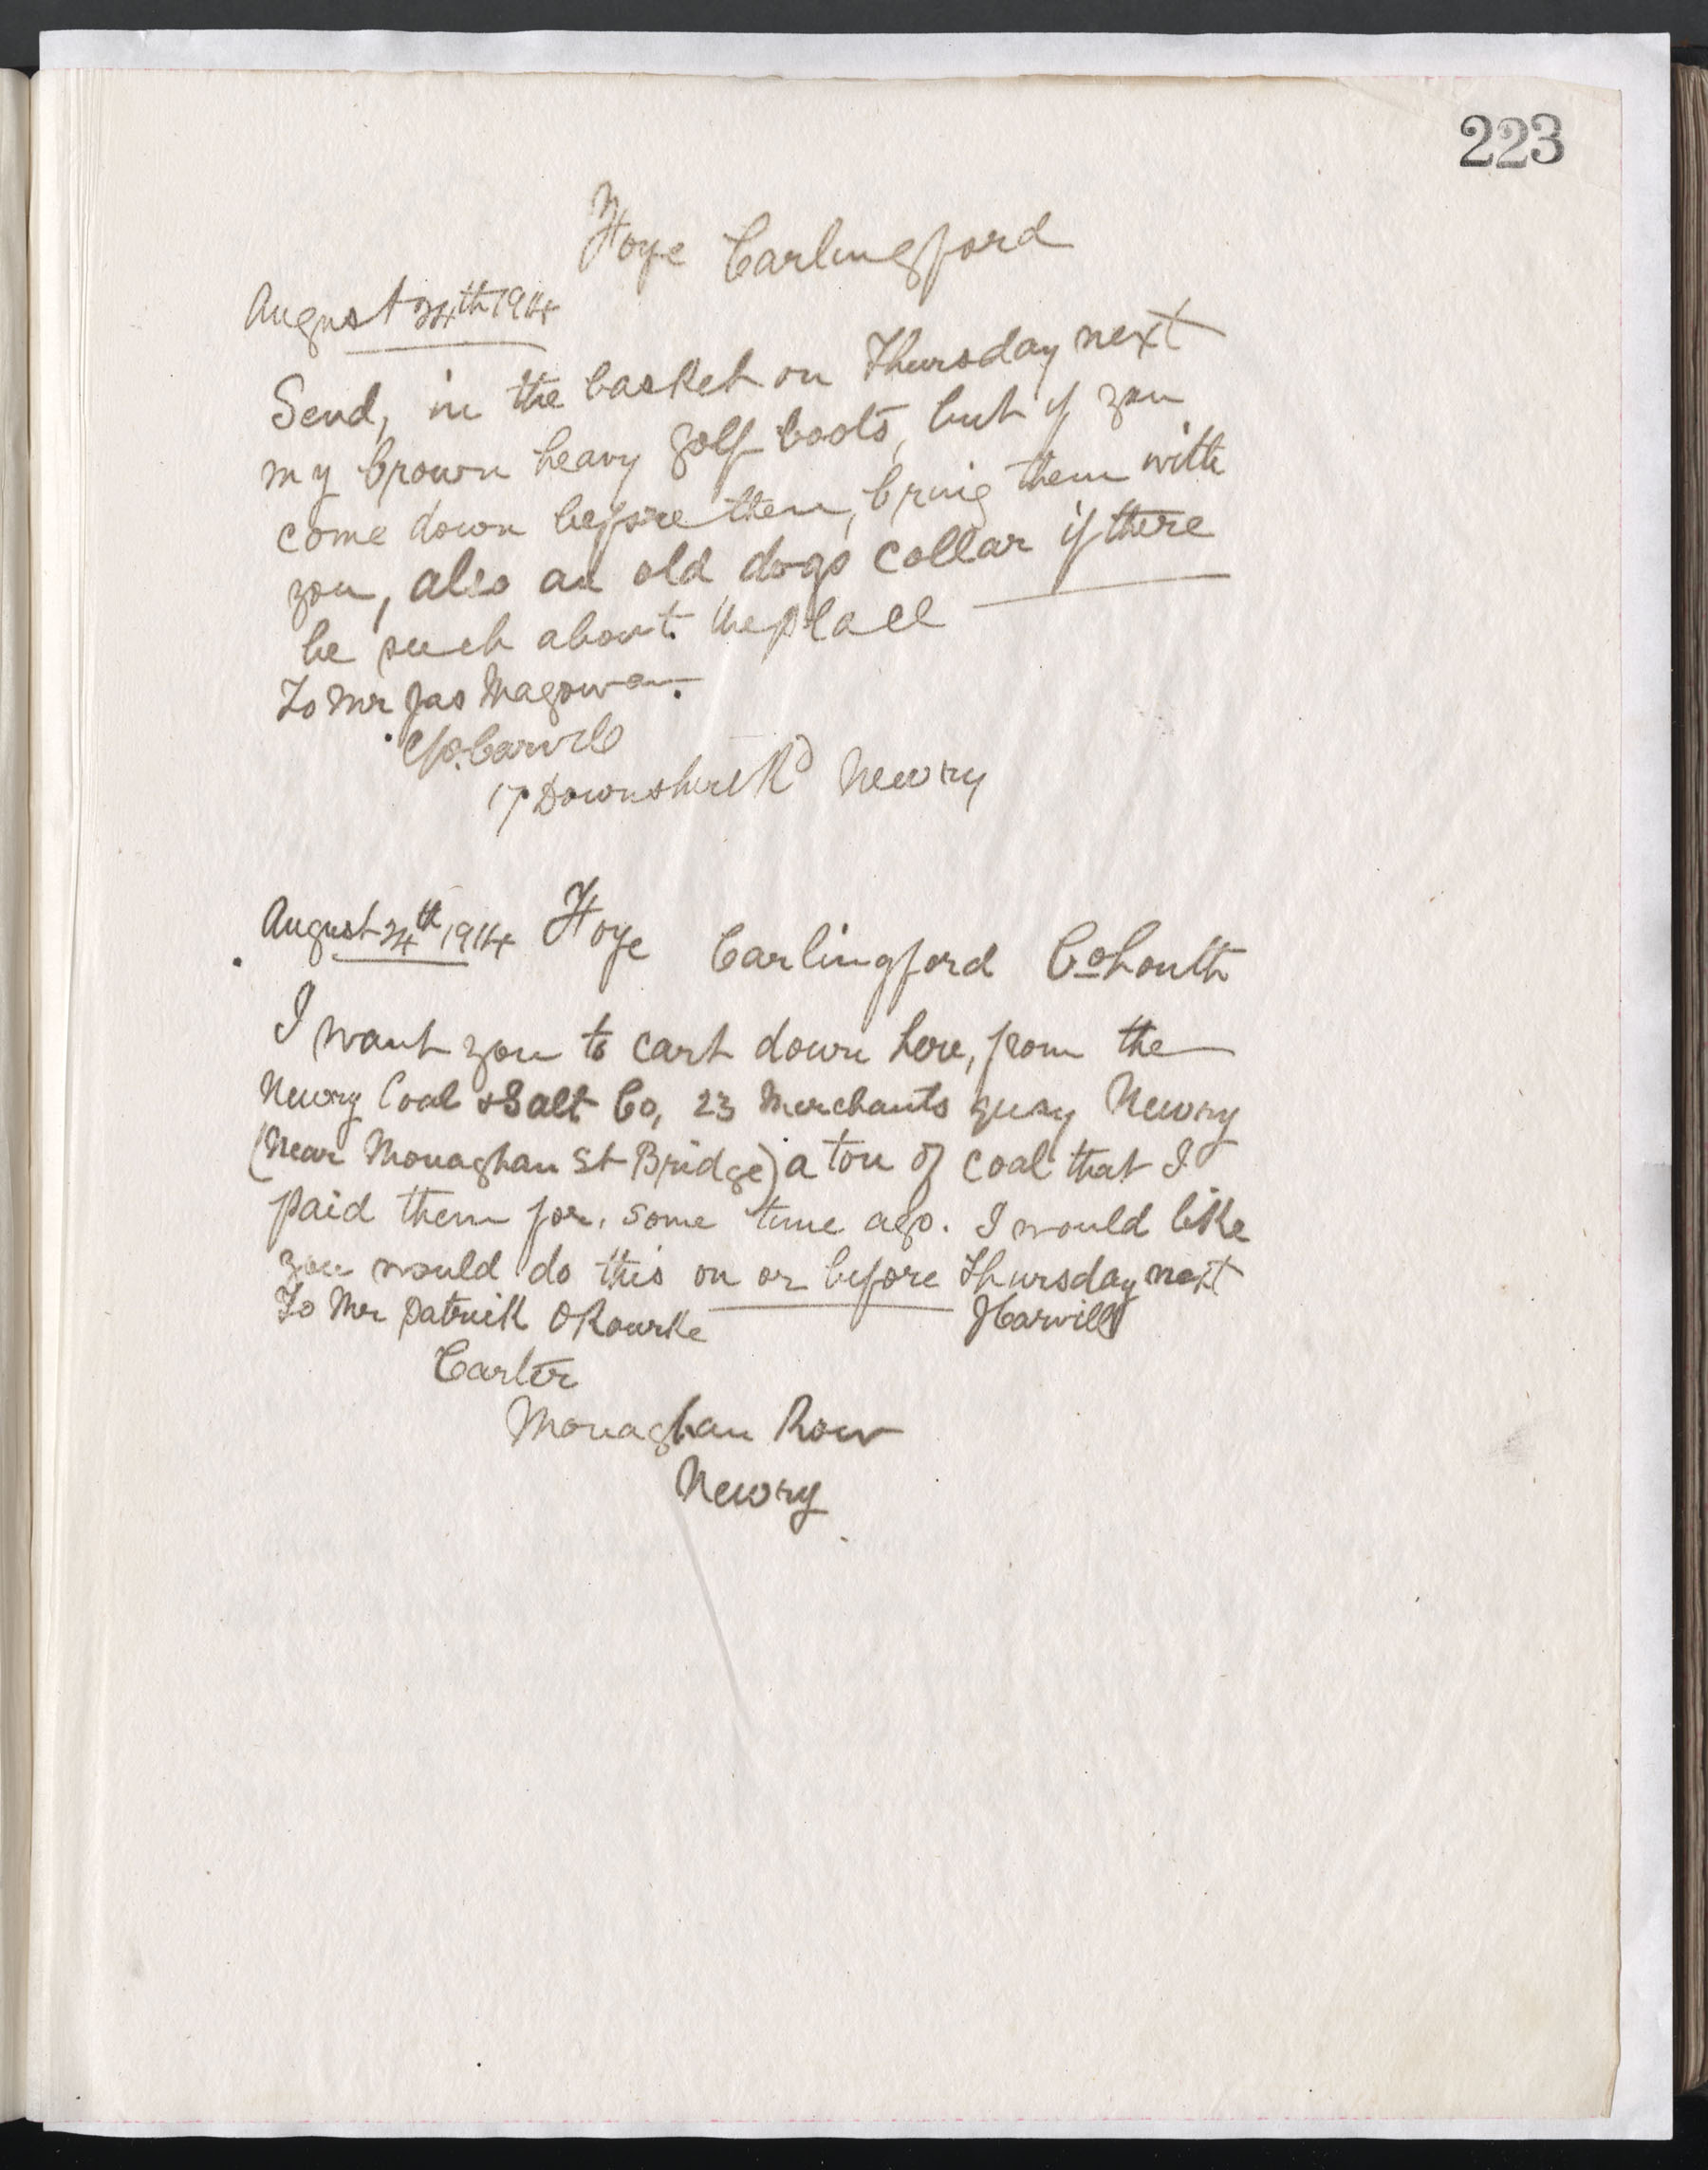 223
Hoye Carlingford
August 24th 1914
Send, in the basket on Thursday next
my brown heavy golf boots, but if you
come down before then, bring them with
you, also an old dogs collar if there
be such about the place
To Mr Jas Magowan.
C/o. Carvill
17 Downshire Rd Newry
August 24th 1914 Hoye Carlingford Co Louth
I want you to cart down here, from the
Newry Coal & Salt Co, 23 Merchants quay Newry
(Near Monaghan St Bridge) a ton of coal that I
paid them for, some time ago. I would like
you would do this on or before Thursday next
To Mr Patrick ORourke JCarvill
Carter
Monaghan Row
Newry